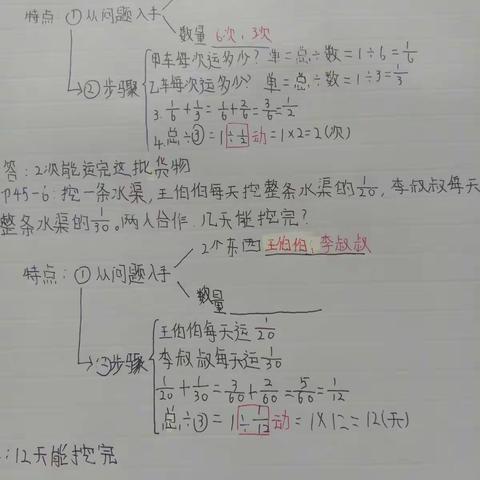 特点：①从问题入手
数量 6次，3次
②步骤
甲车每次运多少？单=总÷数=1÷6=1/6
乙车每次运多少？单=总÷数=1÷3=1/3
3. 1/6+1/3=1/6+2/6=3/6=1/2
4.总÷③=1÷1/2动=1×2=2(次)
答：2次能运完这批货物
P45-6：挖一条水渠，王伯伯每天挖整条水渠的1/20，李叔叔每天
整条水渠的1/30。两人合作，几天能挖完？
2个东西 王伯伯；李叔叔
特点：①从问题入手
数量
③步骤
王伯伯每天运1/20
李叔叔每天运1/30
1/20+1/30=3/60+2/60=5/60=1/12
总÷③=1÷1/12动=1×12=12(天)
：12天能挖完